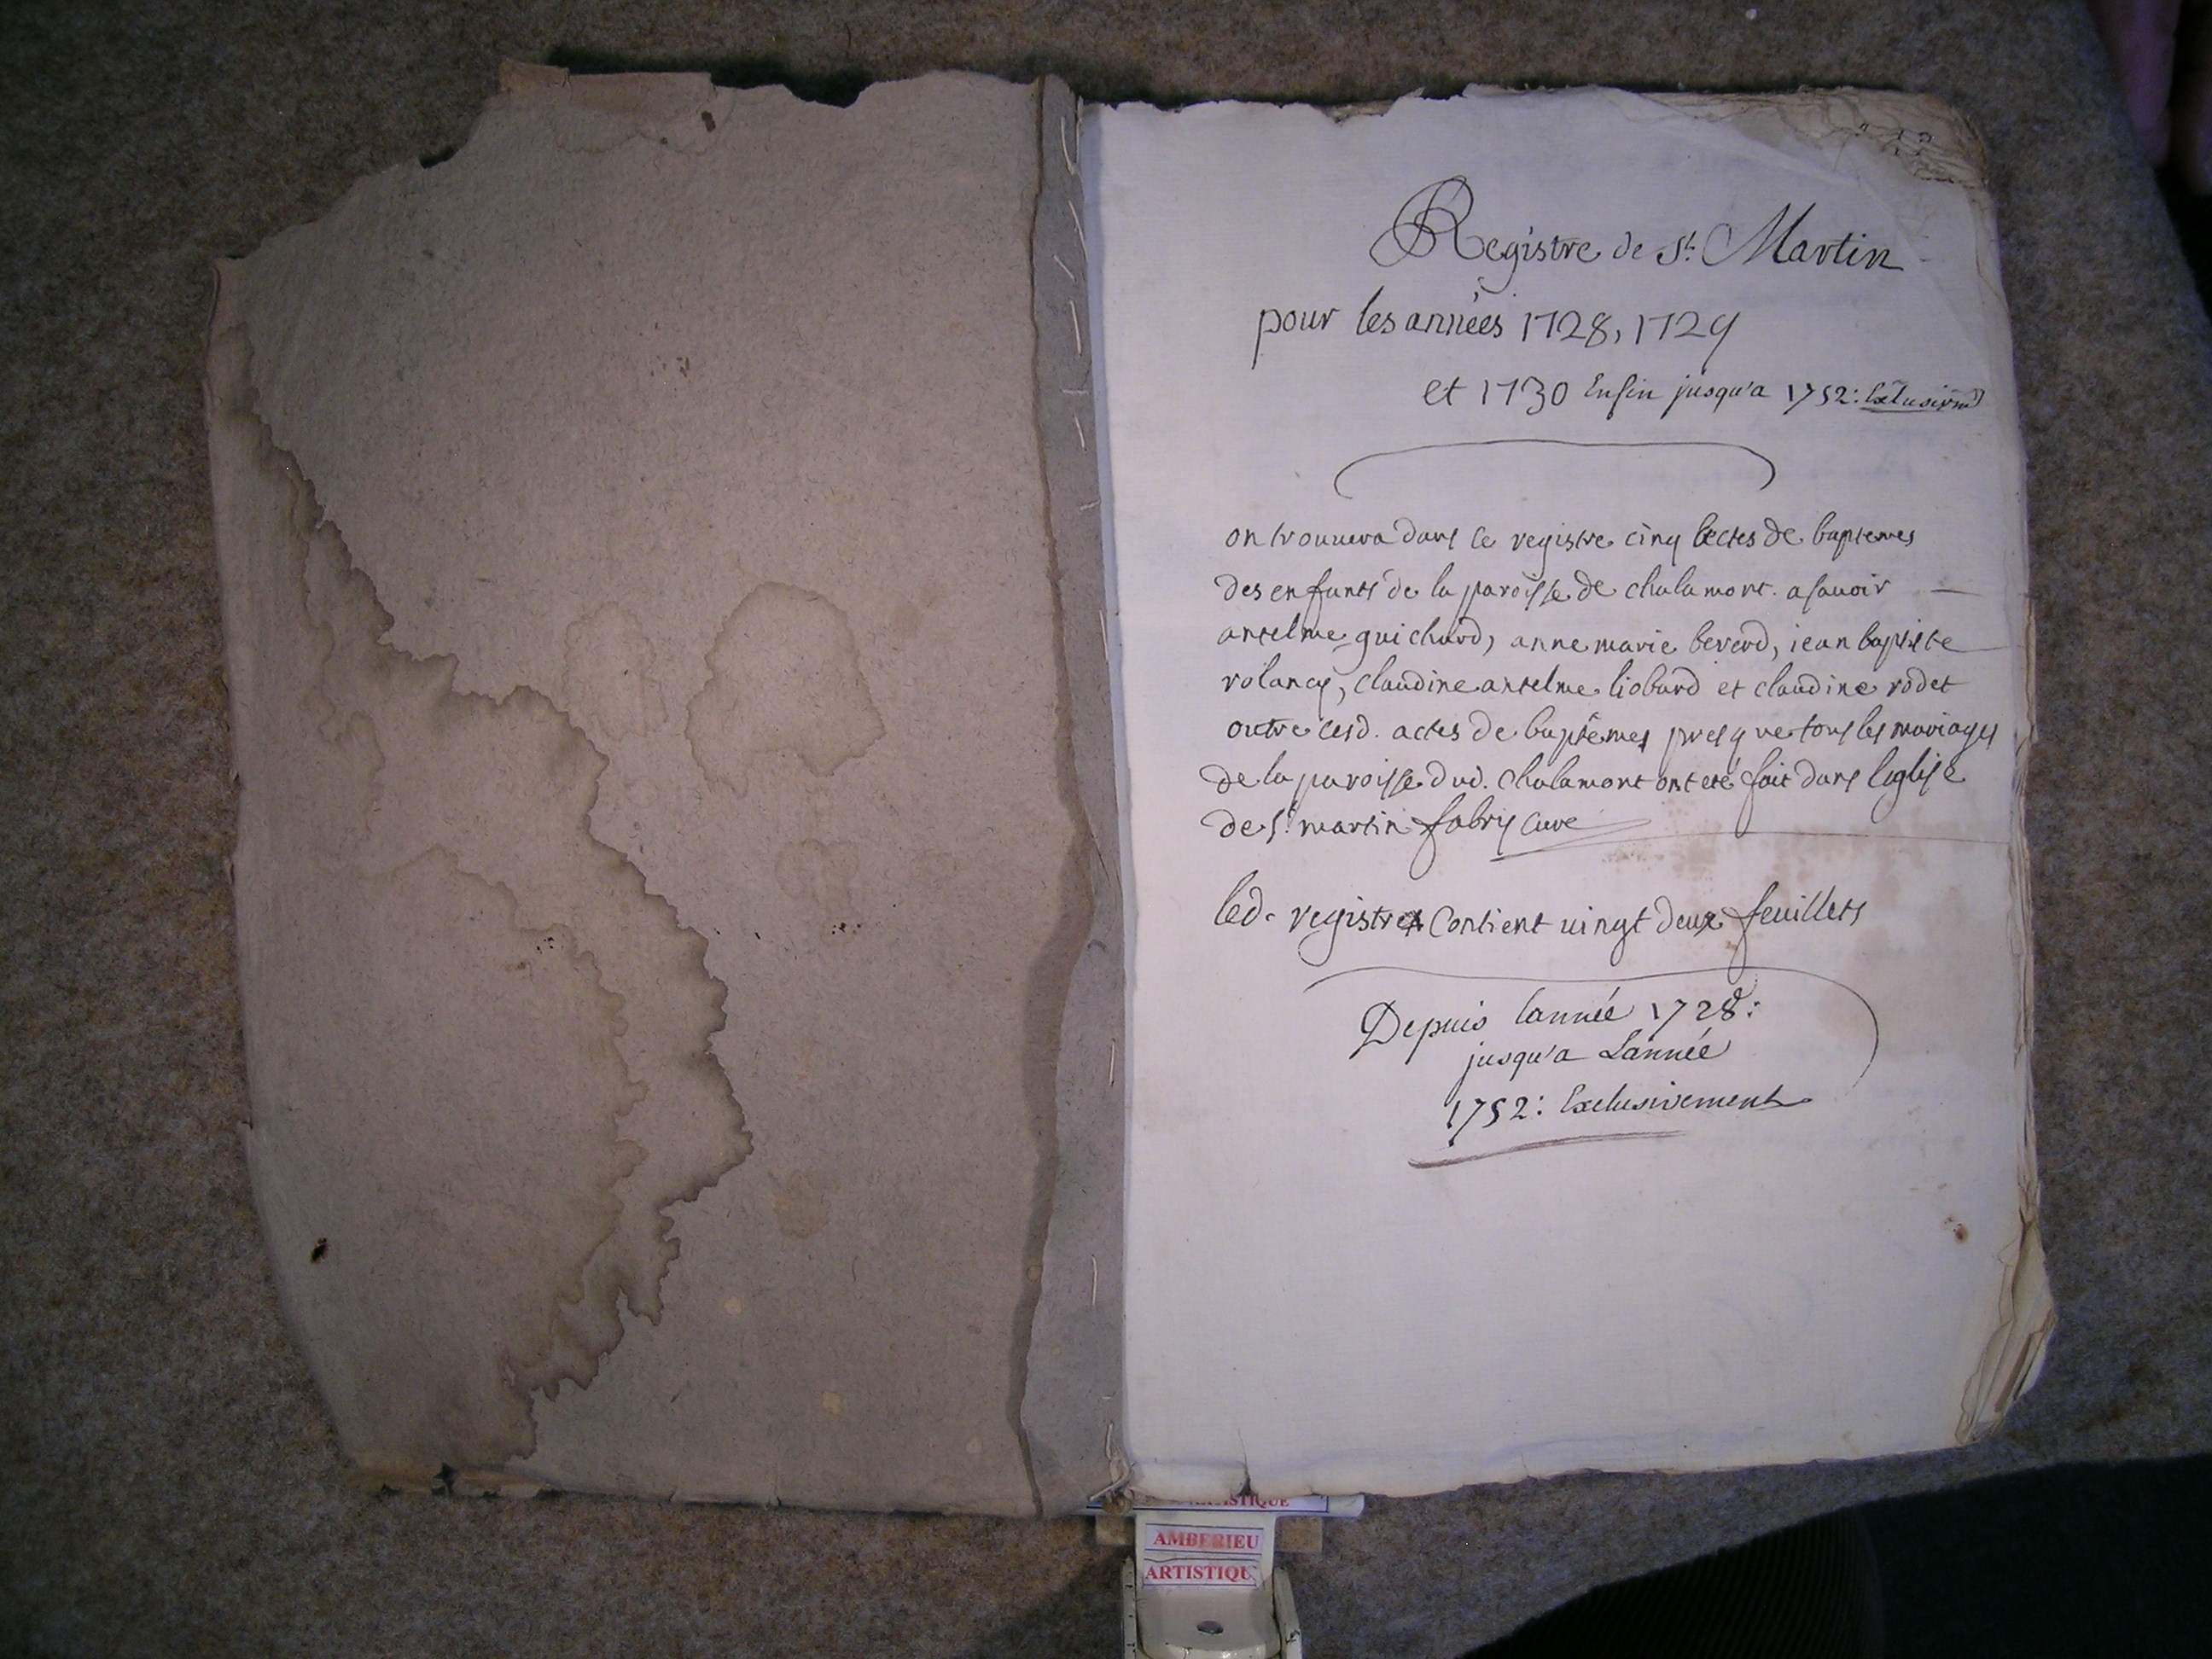 Registre de St. Martin
pour les années 1728, 1729
et 1730 Enfin jusqu'a 1752: Exclusivmt
on trouuera dans ce registre cinq actes de baptemes
des enfants de la paroisse de chalamont. asauoir
antelme guichard, anne marie beverd, iean baptiste
rolancy, claudine antelme liobard et claudine rodet
outre cesd. actes de baptêmes presque tous les mariages
de la paroisse dud. Chalamont ont eté fait dans leglise
de St. martin fabry Curé
led. registre Contient uingt deux feuillets
Depuis lannée 1728:
jusqu'a Lannée
1752: Exclusivement
AMBERIEU
ARTISTIQU